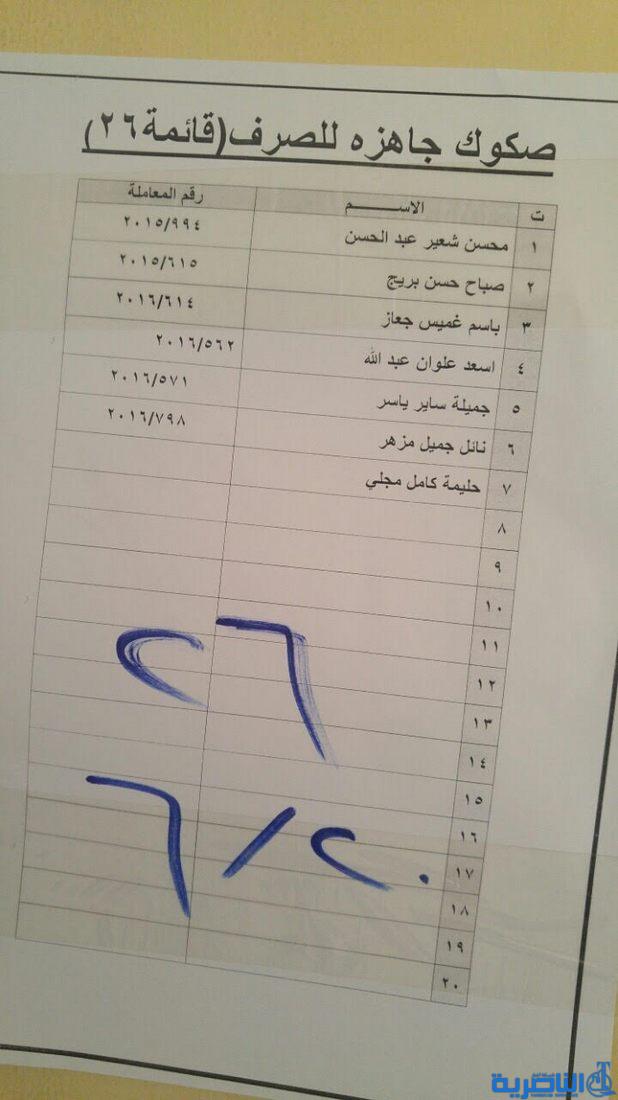 صكوك جاهزه للصرف(قائمة٢٦)
ت الاســـــم رقم المعاملة
١ محسن شعير عبد الحسن ٢٠١٥/٩٩٤
٢ صباح حسن بريج ٢٠١٥/٦١٥
٣ باسم غميس جعاز ٢٠١٦/٦١٤
٤ اسعد علوان عبد الله ٢٠١٦/٥٦٢
٥ جميلة ساير ياسر ٢٠١٦/٥٧١
٦ نائل جميل مزهر ٢٠١٦/٧٩٨
٧ حليمة كامل مجلي
٨
٩
١٠
١١
١٢
١٣
١٤
١٥
١٦
١٧
١٨
١٩
٢٠
٢٦
٦/٢٠
الناصرية